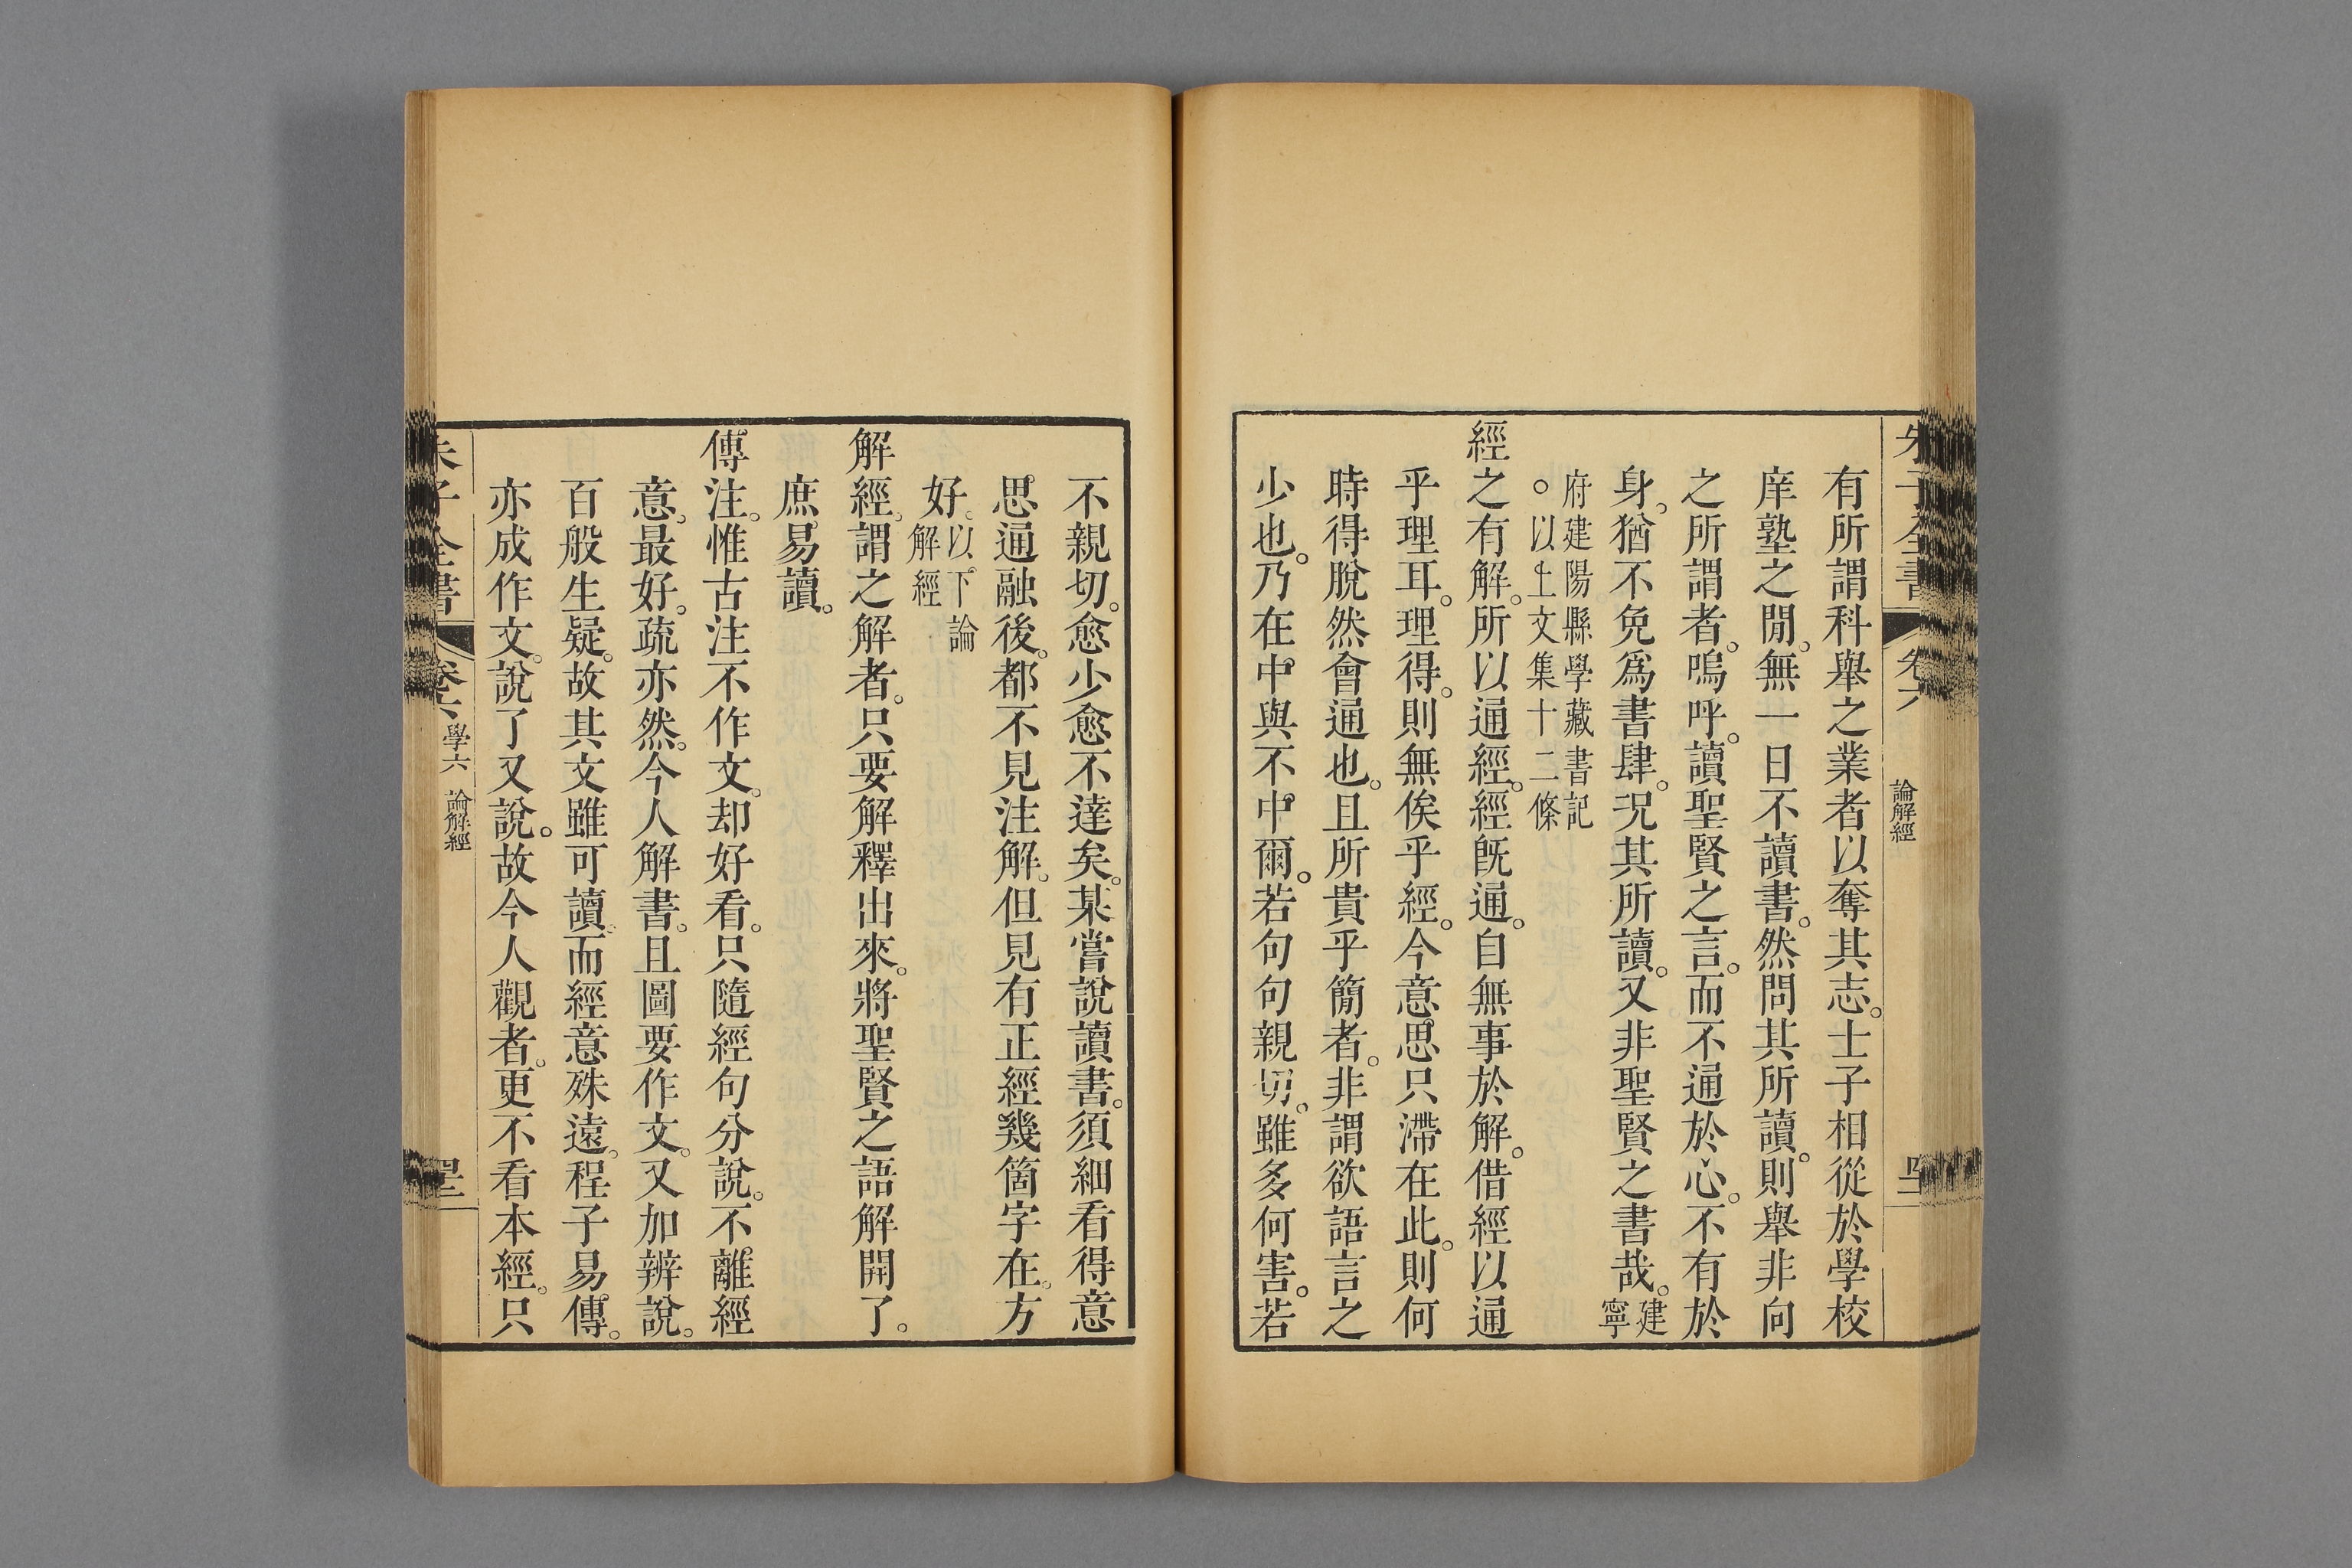 朱子全書 卷六 論解經
有所謂科舉之業者以奪其志。士子相從於學校
庠塾之閒。無一日不讀書。然問其所讀。則舉非向
之所謂者。嗚呼。讀聖賢之言。而不通於心。不有於
身。猶不免爲書肆。況其所讀。又非聖賢之書哉。建寧
府建陽縣學藏書記
。以上文集十二條
經之有解。所以通經。經既通。自無事於解。借經以通
乎理耳。理得。則無俟乎經。今意思只滯在此。則何
時得脫然會通也。且所貴乎簡者。非謂欲語言之
少也。乃在中與不中爾。若句句親切。雖多何害。若
不親切。愈少愈不達矣。某嘗說讀書。須細看得意
思通融後。都不見注解。但見有正經幾箇字在。方
好。以下論解經
解經。謂之解者。只要解釋出來。將聖賢之語解開了。
庶易讀。
傳注。惟古注不作文。却好看。只隨經句分說。不離經
意。最好。疏亦然。今人解書。且圖要作文。又加辨說。
百般生疑。故其文雖可讀。而經意殊遠。程子易傳。
亦成作文。說了又說。故今人觀者。更不看本經。只
朱子全書 卷六 學六 論解經